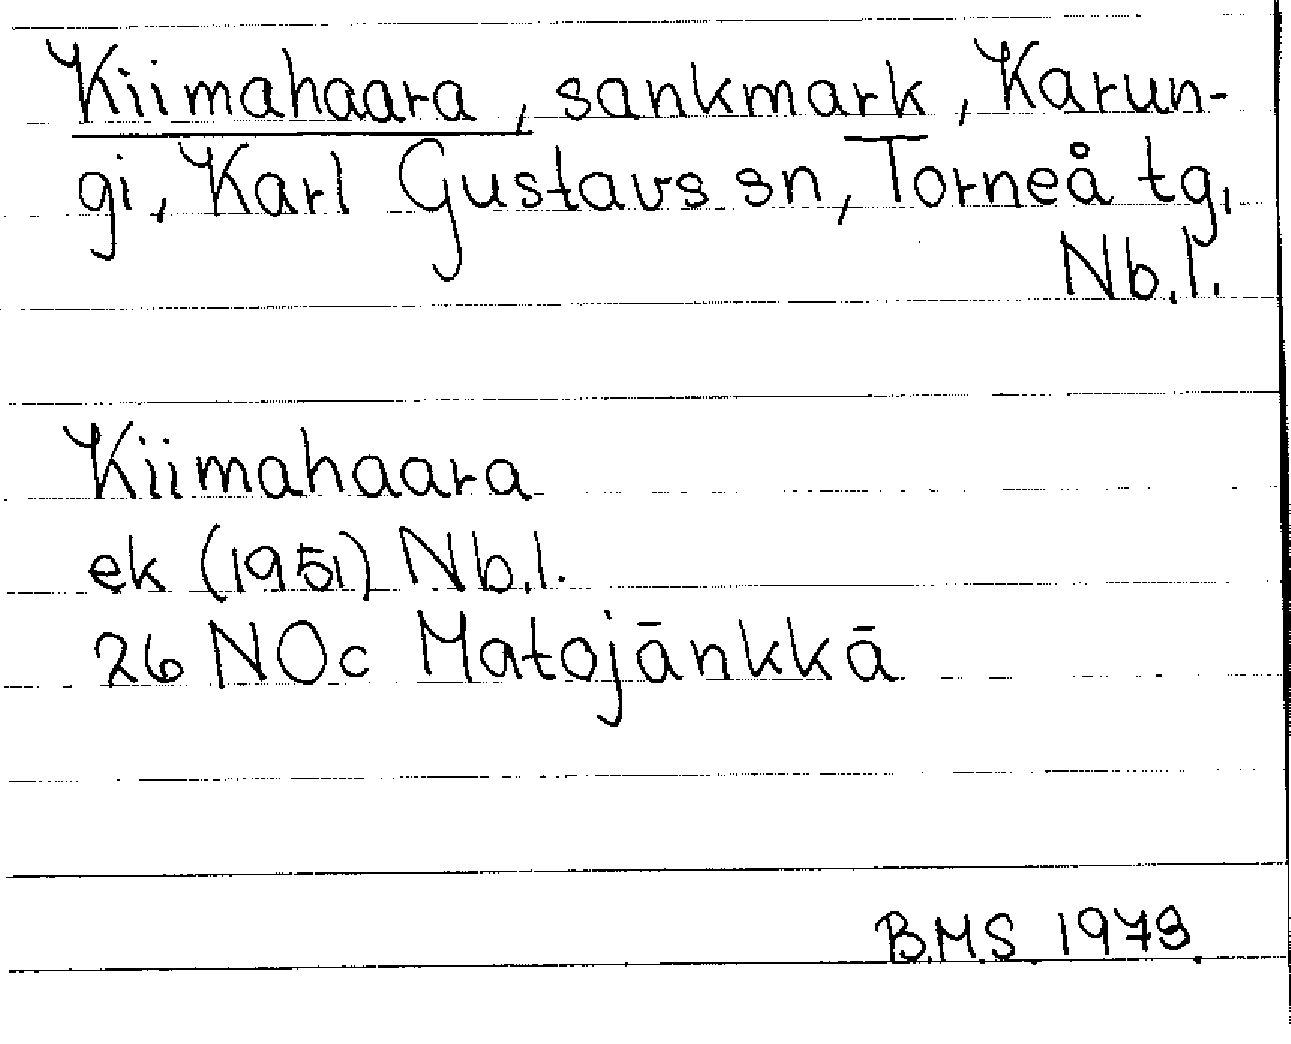 Kiimahaara, sankmark, Karun-
gi, Karl Gustavs sn, Torneå tg,
Nb.l.
Kiimahaara
ek (1951) Nb.l.
26 NOc Matojänkkä
B.M.S. 1973.